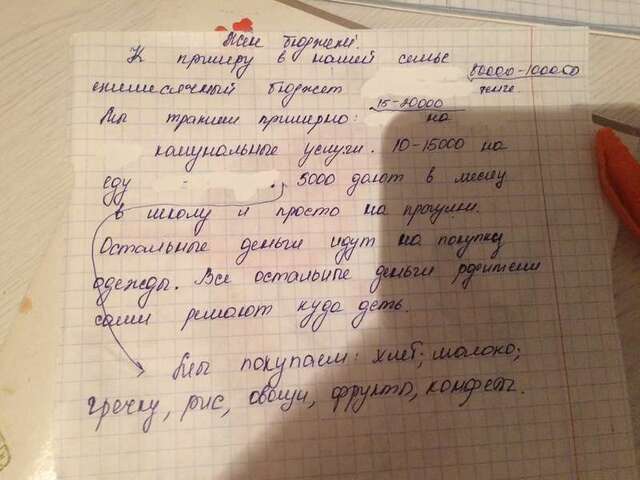 Мен бюджеті.
К примеру в нашей семье
80000-100000
ежемесячный бюджет тенге.
15-20000
Мы тратим примерно: на
коммунальные услуги. 10-15000 на
еду . 5000 дают в месяц
в школу и просто на прогулки.
Остальные деньги идут на покупку
одежды. Все остальные деньги родители
сами решают куда деть.
Мы покупаем: хлеб; молоко;
гречку, рис, овощи, фрукты, конфеты.